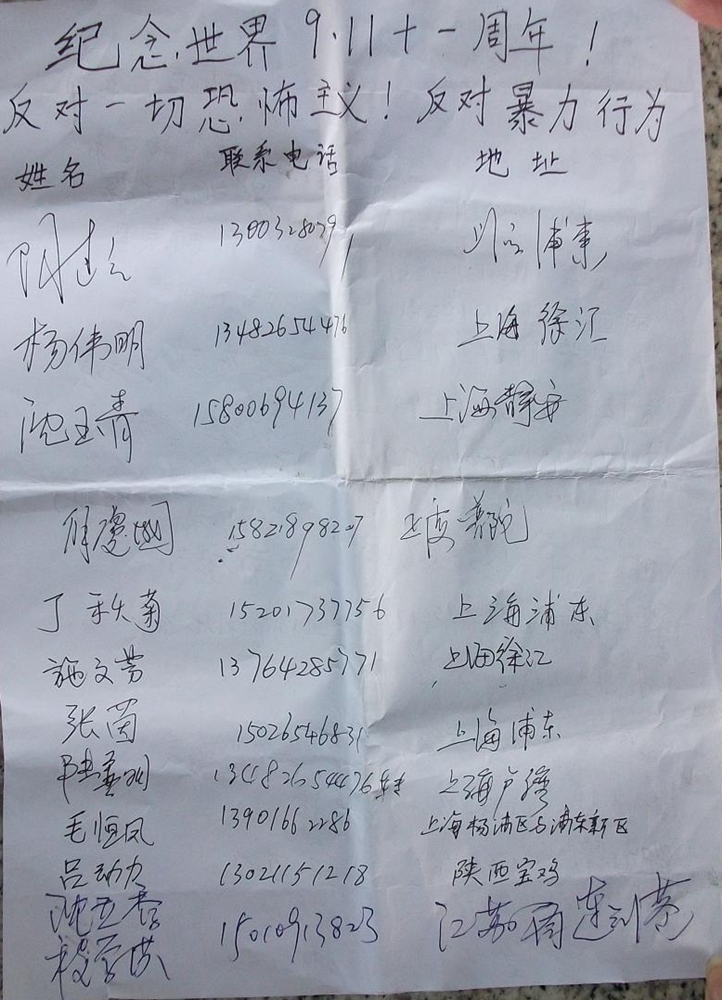 纪念世界9.11十一周年！
反对一切恐怖主义！反对暴力行为
姓名 联系电话 地址
1300328079 浦东
杨伟明 13482654476 上海徐汇
沈玉青 15800694137 上海静安
15821898227
丁秋菊 15201737756 上海浦东
施文芳 13764285771 上海徐汇
张茵 15026546831 上海浦东
13482654476转 上海卢湾
毛恒凤 13901662286 上海杨浦区与浦东新区
吕动力 13021151218 陕西宝鸡
15010913823 江苏